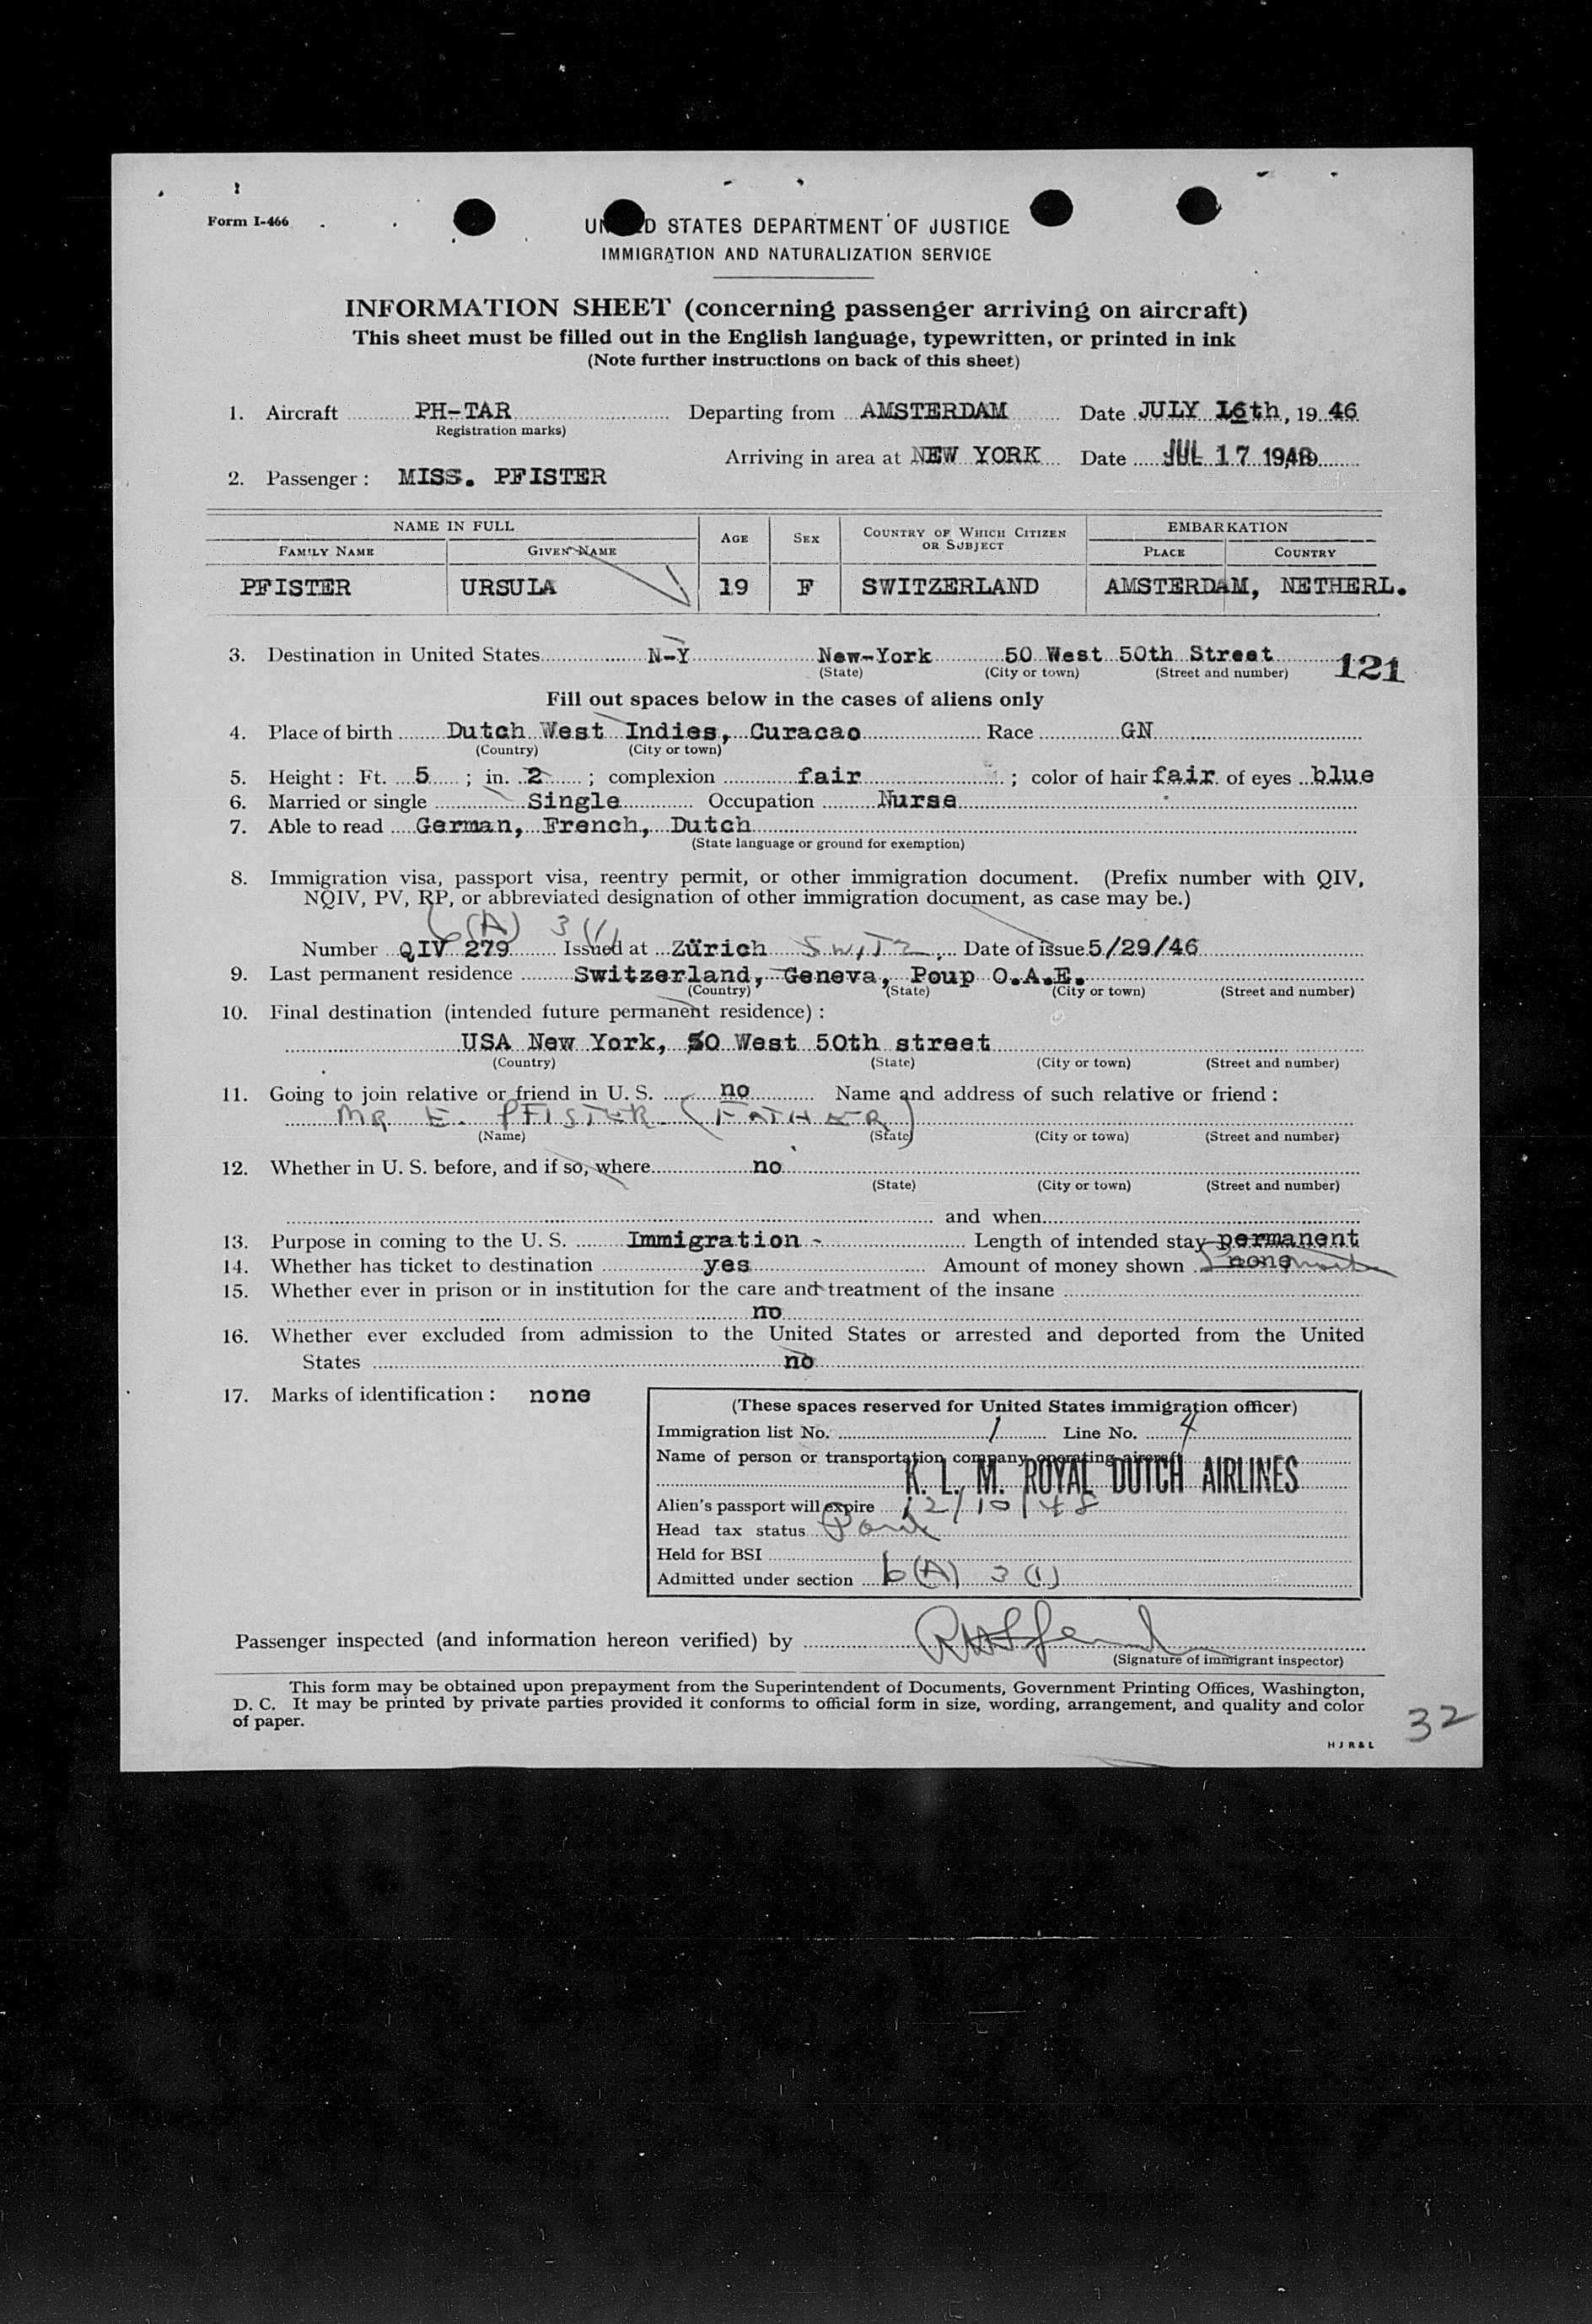 Form I-466
UNITED STATES DEPARTMENT OF JUSTICE
IMMIGRATION AND NATURALIZATION SERVICE
INFORMATION SHEET (concerning passenger arriving on aircraft)
This sheet must be filled out in the English language, typewritten, or printed in ink
(Note further instructions on back of this sheet)
1. Aircraft PH-TAR Departing from AMSTERDAM Date JULY 16th, 19 46
(Registration marks)
Arriving in area at NEW YORK Date JUL 17 1946
2. Passenger: MISS. PFISTER
NAME IN FULL AGE SEX COUNTRY OF WHICH CITIZEN OR SUBJECT EMBARKATION
FAMILY NAME GIVEN NAME PLACE COUNTRY
PFISTER URSULA 19 F SWITZERLAND AMSTERDAM, NETHERL.
3. Destination in United States N-Y New-York 50 West 50th Street
(State) (City or town) (Street and number) 121
Fill out spaces below in the cases of aliens only
4. Place of birth Dutch West Indies, Curacao Race GN
(Country) (City or town)
5. Height: Ft. 5; in. 2; complexion fair; color of hair fair of eyes blue
6. Married or single Single Occupation Nurse
7. Able to read German, French, Dutch
(State language or ground for exemption)
8. Immigration visa, passport visa, reentry permit, or other immigration document. (Prefix number with QIV,
NQIV, PV, RP, or abbreviated designation of other immigration document, as case may be.)
6(A) 3(1)
Number QIV 279 Issued at Zürich SWITZ. Date of issue 5/29/46
9. Last permanent residence Switzerland, Geneva, Poup O.A.E.
(Country) (State) (City or town) (Street and number)
10. Final destination (intended future permanent residence):
USA New York, 50 West 50th street
(Country) (State) (City or town) (Street and number)
11. Going to join relative or friend in U. S. no Name and address of such relative or friend:
MR E. PFISTER (FATHER)
(Name) (State) (City or town) (Street and number)
12. Whether in U. S. before, and if so, where no
(State) (City or town) (Street and number)
and when
13. Purpose in coming to the U. S. Immigration - Length of intended stay permanent
14. Whether has ticket to destination yes Amount of money shown none
15. Whether ever in prison or in institution for the care and treatment of the insane
no
16. Whether ever excluded from admission to the United States or arrested and deported from the United
States no
17. Marks of identification: none
(These spaces reserved for United States immigration officer)
Immigration list No. 1 Line No. 4
Name of person or transportation company operating aircraft
K. L. M. ROYAL DUTCH AIRLINES
Alien's passport will expire 12/10/48
Head tax status
Held for BSI
Admitted under section 6(A) 3(1)
Passenger inspected (and information hereon verified) by
(Signature of immigrant inspector)
This form may be obtained upon prepayment from the Superintendent of Documents, Government Printing Offices, Washington,
D. C. It may be printed by private parties provided it conforms to official form in size, wording, arrangement, and quality and color
of paper.
32
H J R & L